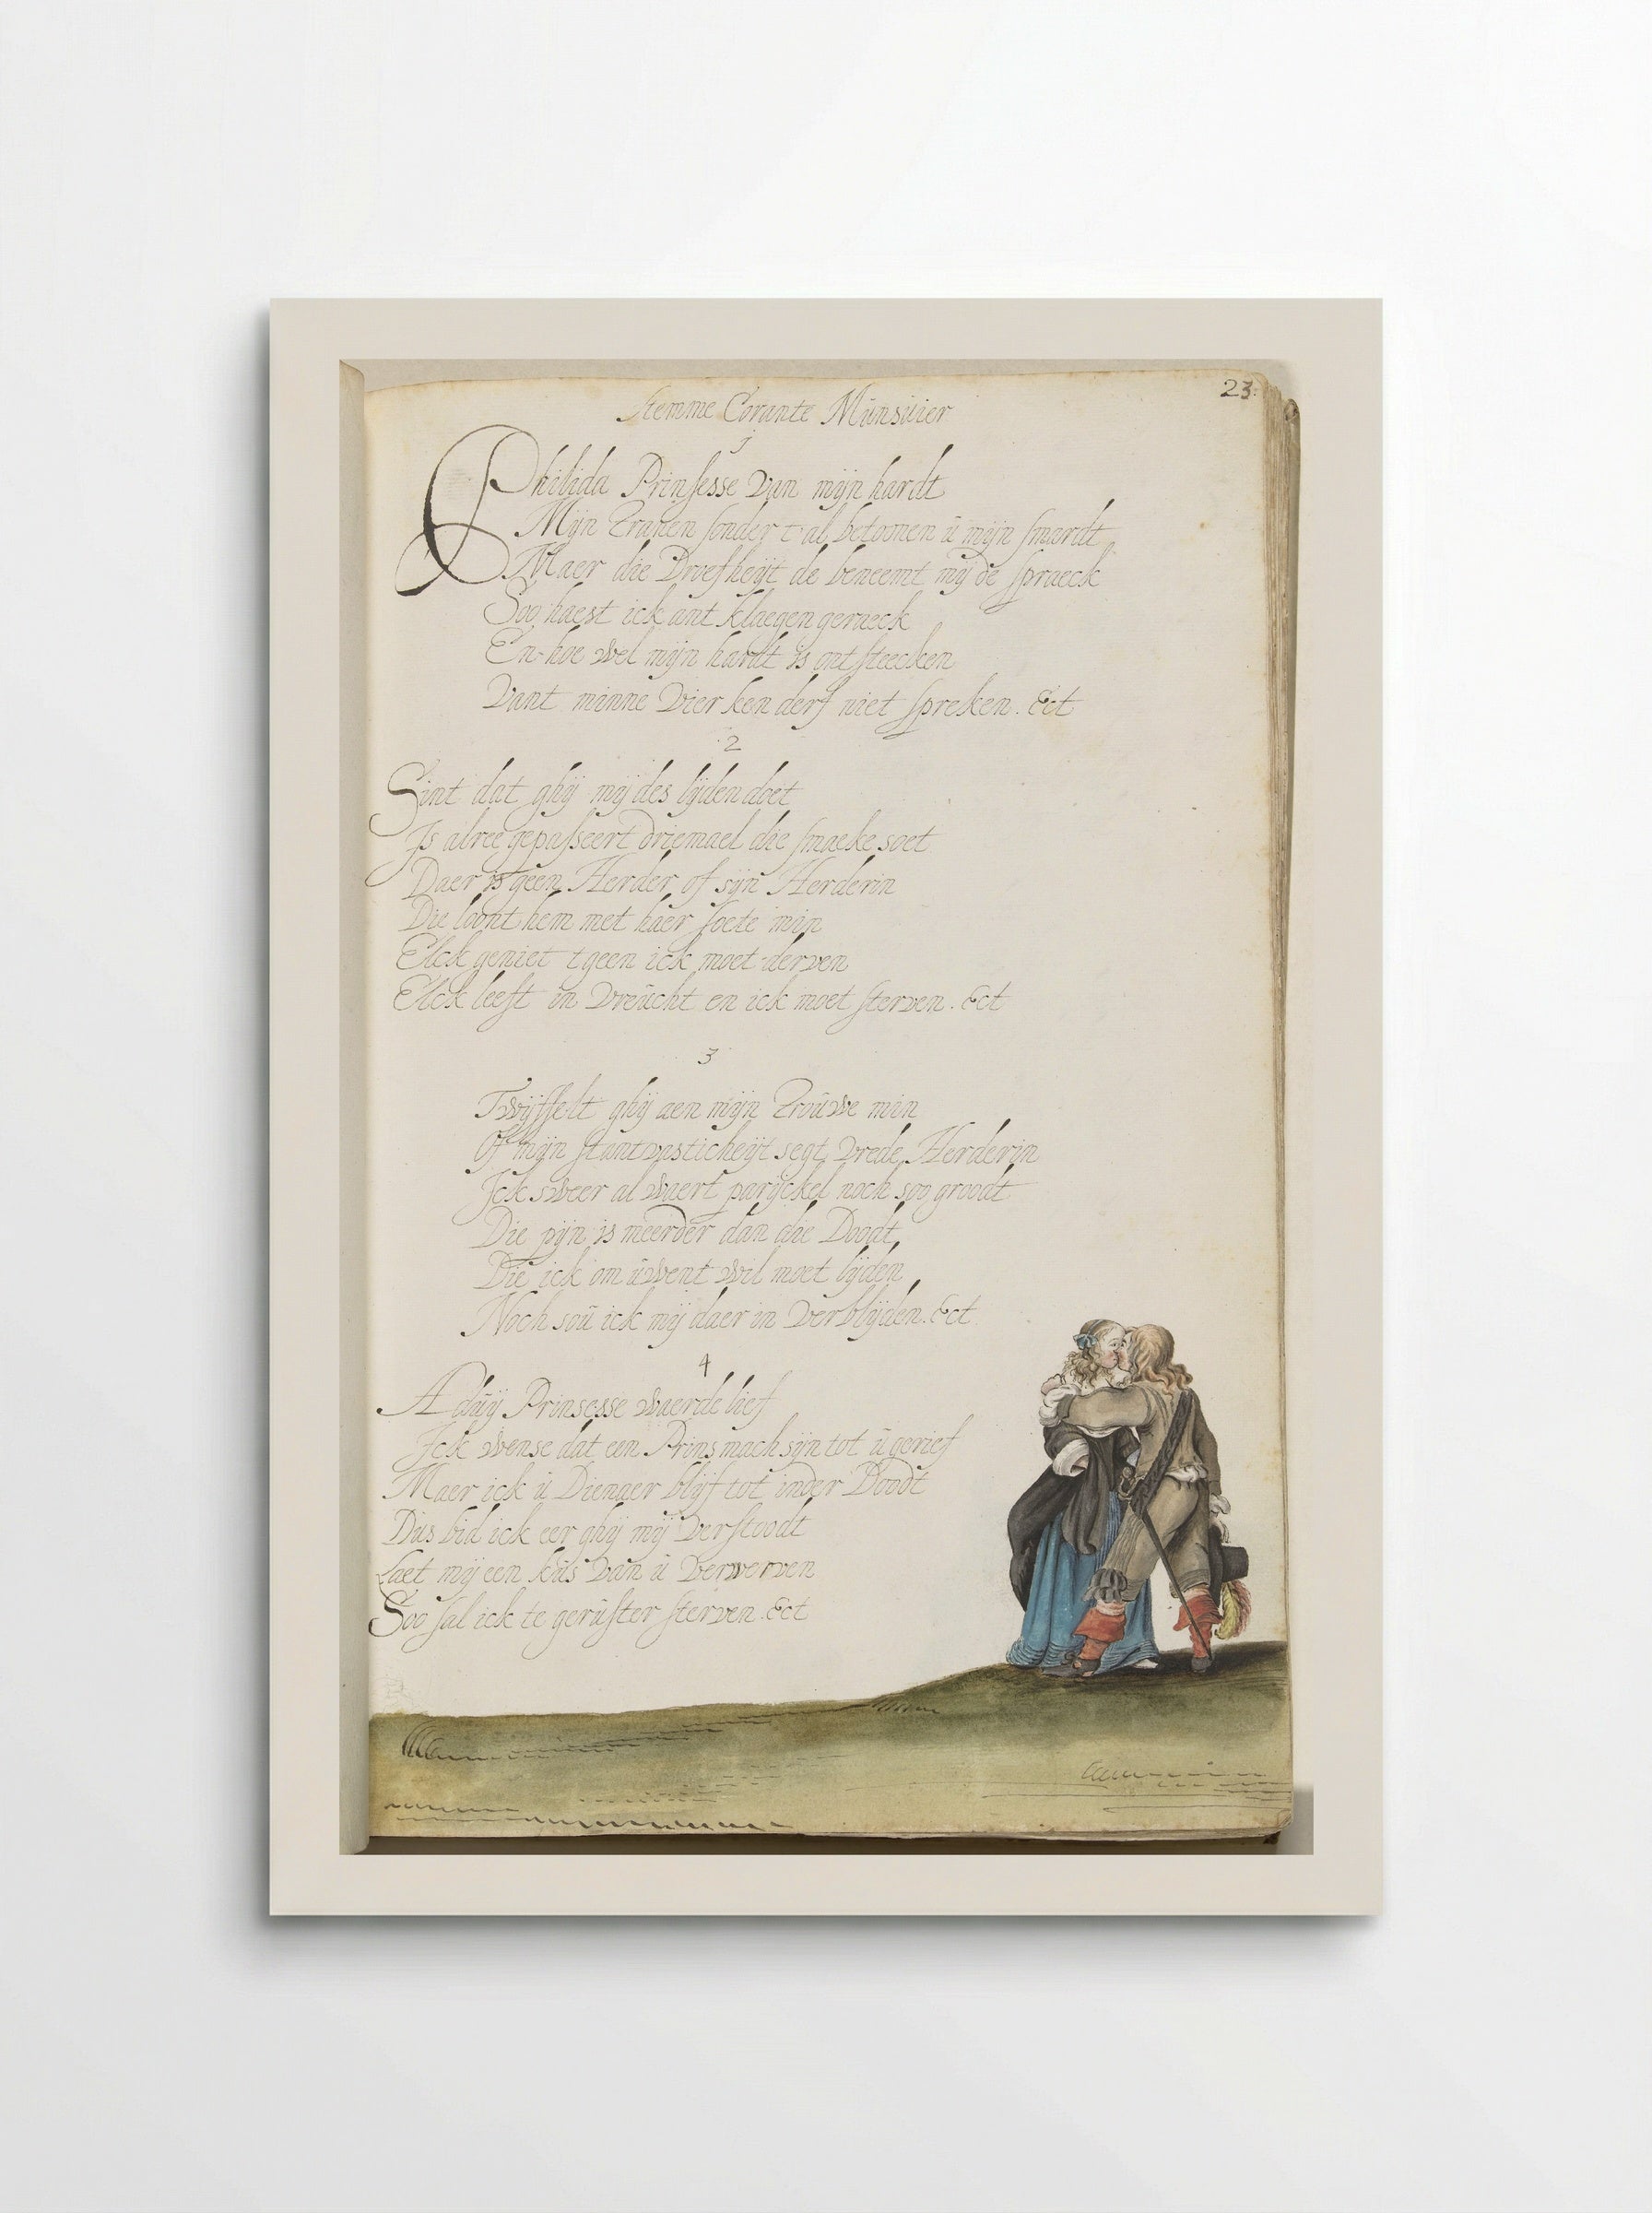 23.
Stemme Corante Münsüier
1
Philida Prinsesse van mijn hardt
Mijn Tranen sonder tal betoonen ü mijn smardt
Maer die Droefheijt de beneemt mij de spraeck
Soo haest ick ant klaegen geraeck
En hoe wel mijn hardt is ontsteecken
Vant minne Vier ken derf niet spreken. Ect
2
Sint dat ghij mij des lijden doet
Is alree gepasseert driemael die smaeke soet
Daer is geen Herder of sijn Herderin
Die loont hem met haer soete min
Elck geniet tgeen ick moet derven
Elck leeft in Vreücht en ick moet sterven. Ect
3
Twijffelt ghij aen mijn Troüwe min
Of mijn stantvasticheijt segt Vrede Herderin
Ick sweer al waert parijckel noch soo groodt
Die pijn is meerder dan die Doodt
Die ick om üwent wil moet lijden
Noch soü ick mij daer in Verblijden. Ect
4
Adüij Prinsesse waerde lief
Ick wense dat een Prins mach sijn tot ü gerief
Maer ick ü Dienaer blijf tot inder Doodt
Düs bid ick eer ghij mij Verstoodt
Laet mij een küs van ü Verwerven
Soo sal ick te gerüster sterven. Ect